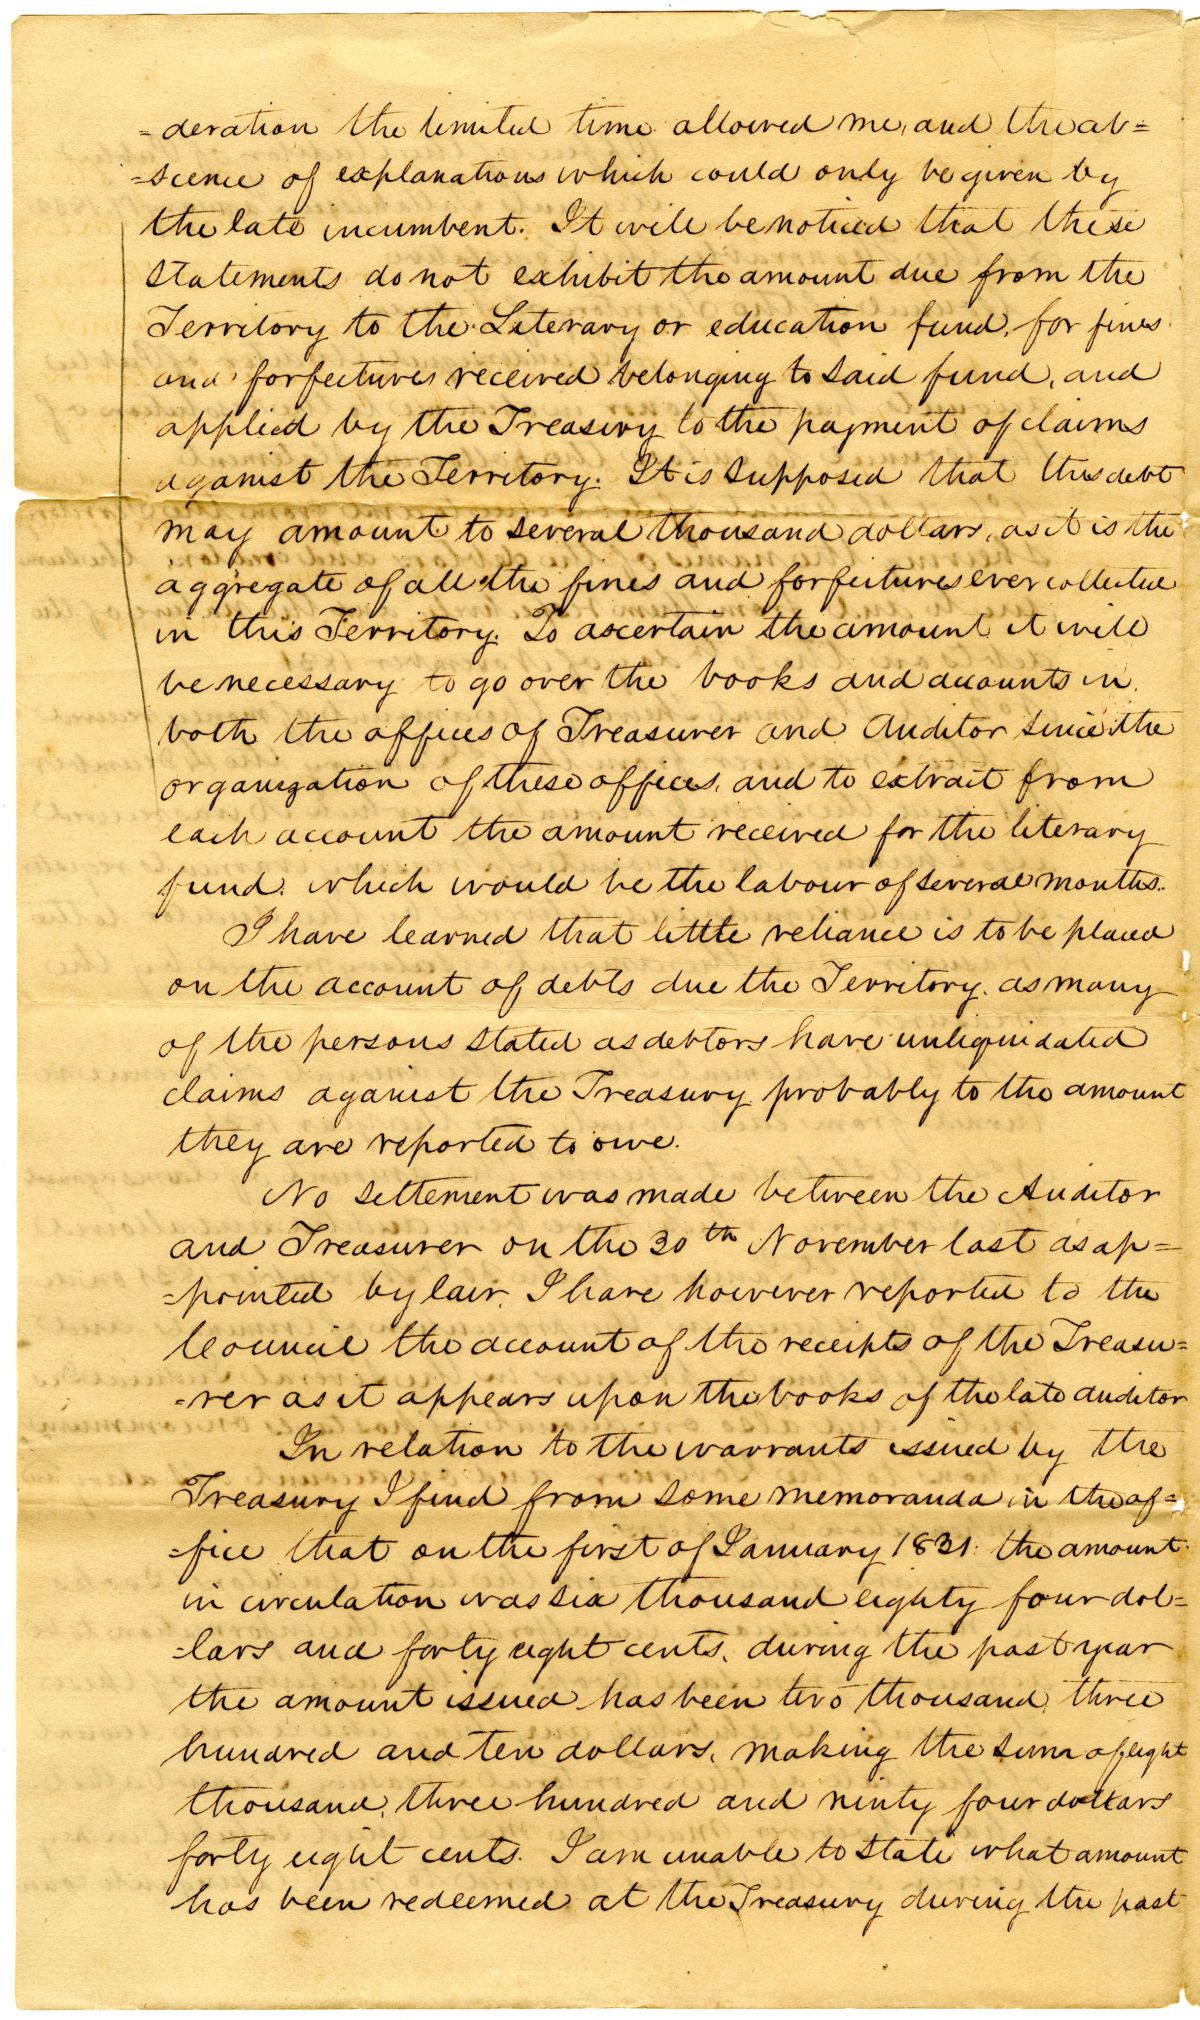 =deration the limited time allowed me, and the ab=
=scence of explanations which could only be given by
the late incumbent. It will be noticed that these
statements do not exhibit the amount due from the
Territory to the Literary or education fund, for fines
and forfeitures received belonging to said fund, and
applied by the Treasury to the payment of claims
against the Territory. It is supposed that this debt
may amount to several thousand dollars, as it is the
aggregate of all the fines and forfeitures ever collected
in this Territory. To ascertain the amount it will
be necessary to go over the books and accounts in
both the offices of Treasurer and Auditor since the
organization of these offices, and to extrait from
each account the amount received for the literary
fund. which would be the labour of several months.
I have learned that little reliance is to be placed
on the account of debts due the Territory. as many
of the persons stated as debtors have unliquidated
claims against the Treasury probably to the amount
they are reported to owe.
No settement was made between the Auditor
and Treasurer on the 30th November last as ap=
=pointed by law. I have however reported to the
Council the account of the receipts of the Treasu=
=rer as it appears upon the books of the late auditor
In relation to the warrants issued by the
Treasury I find from some memoranda in the of=
=fice that on the first of January 1831 the amount
in circulation was six thousand eighty four dol=
=lars and forty eight cents, during the past year
the amount issued has been two thousand three
hundred and ten dollars, making the sum of eight
thousand, three hundred and ninty four dollars
forty eight cents. I am unable to state what amount
has been redeemed at the Treasury during the past